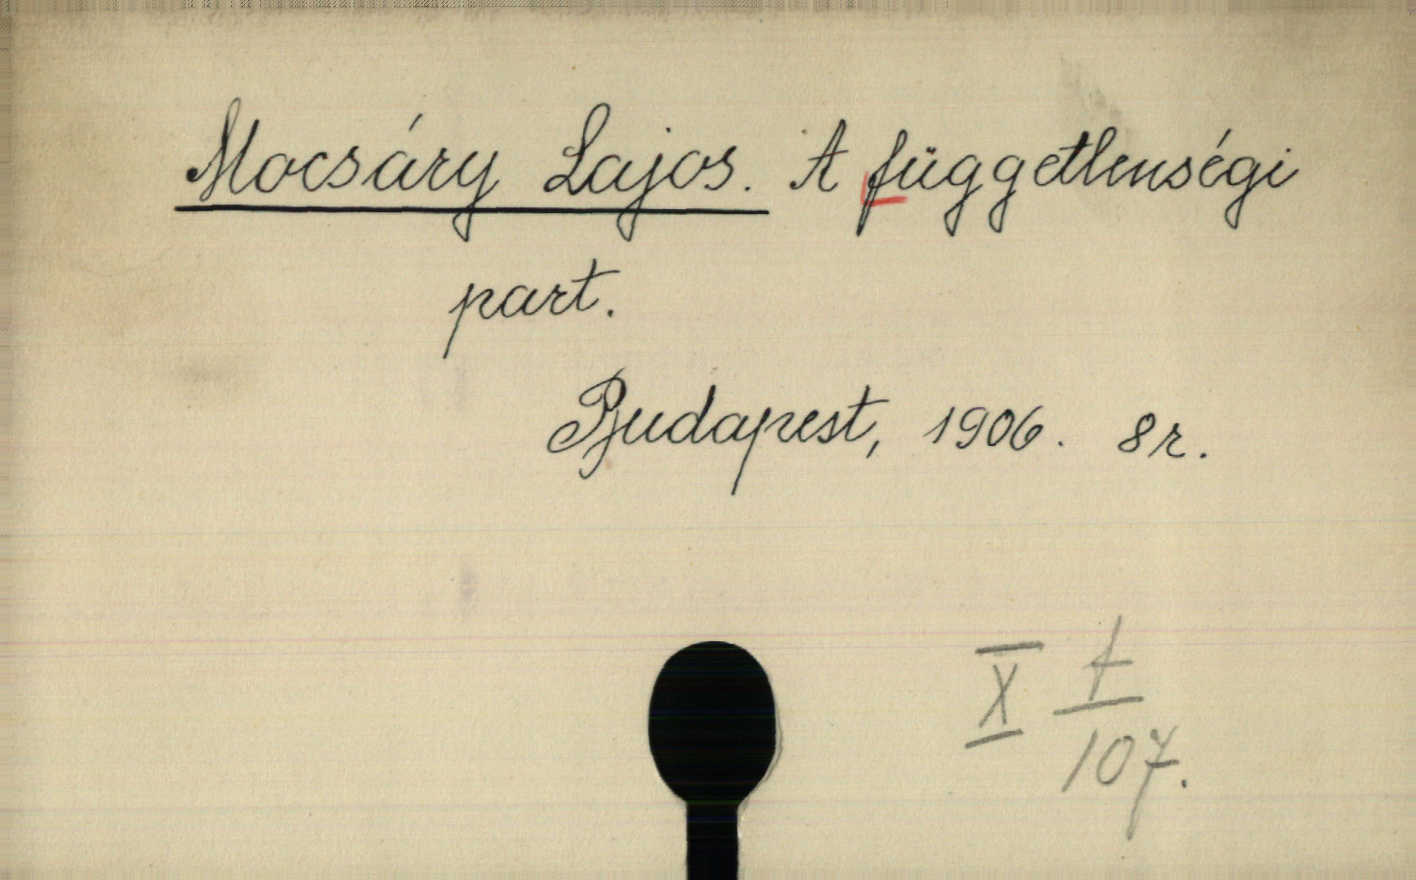 Mocsáry Lajos. A függetlenségi
part.
Budapest, 1906. 8r.
X f
107.